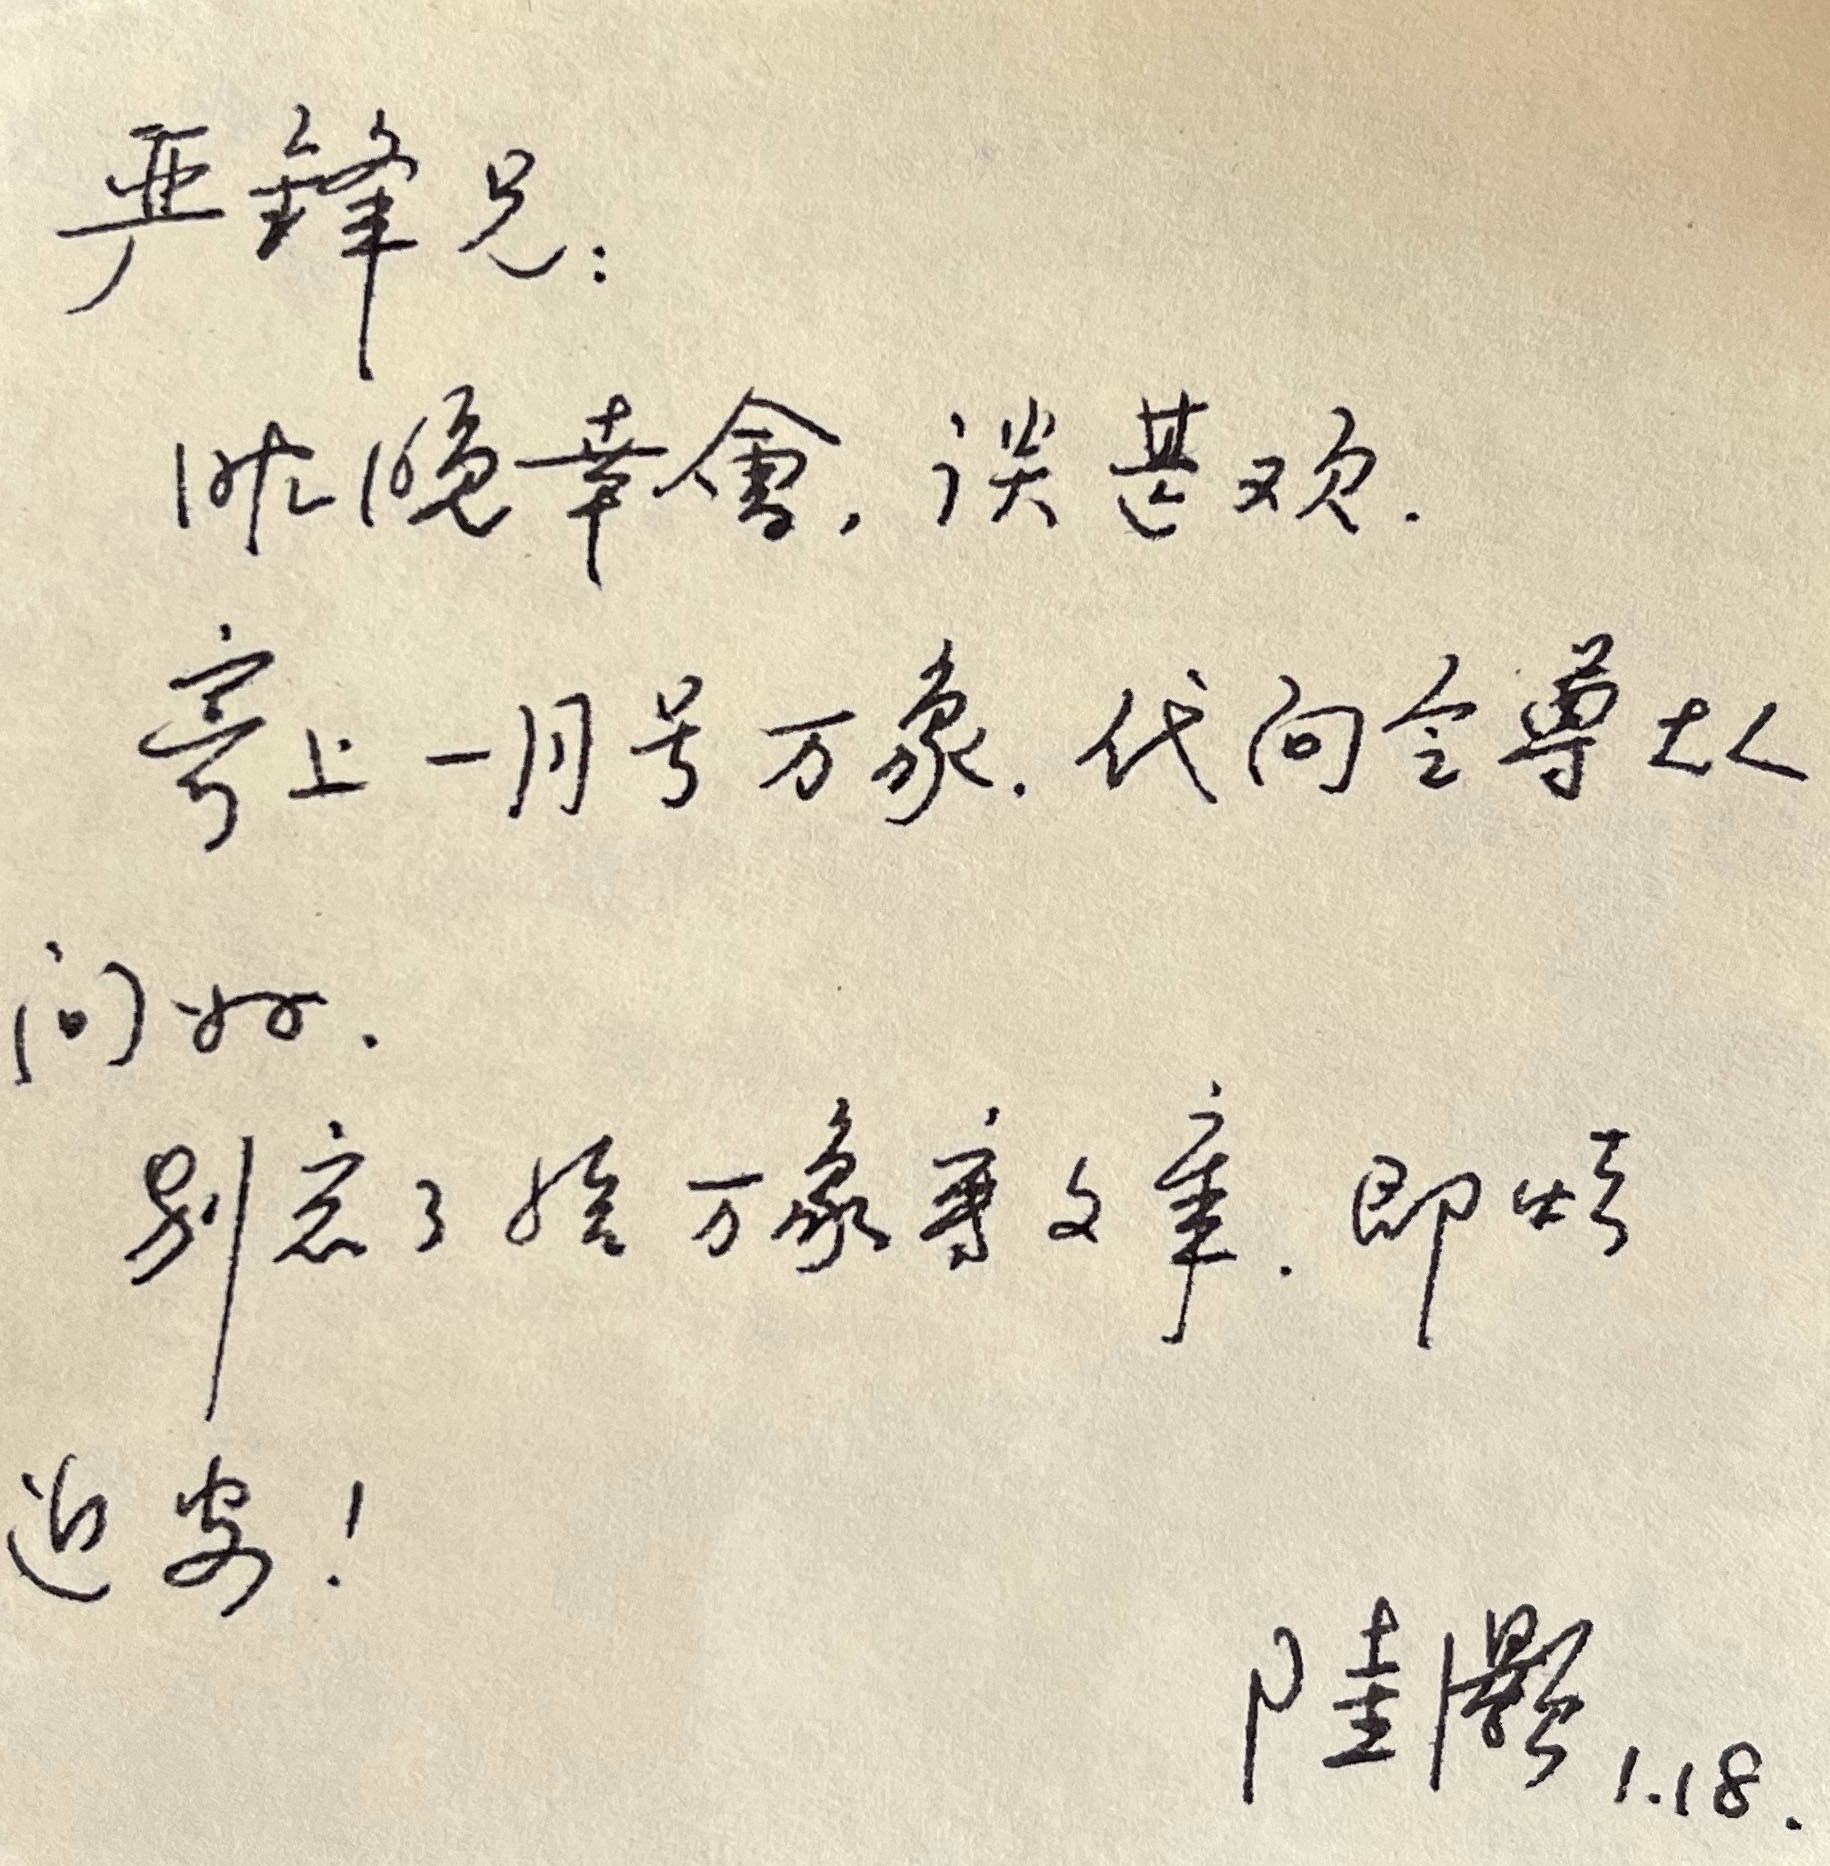 严鋒兄：
昨晚幸會，谈甚欢.
寄上一月号万象.代问令尊大人
问好.
别忘了给万象写文章.即颂
近安!
陆灏 1.18.